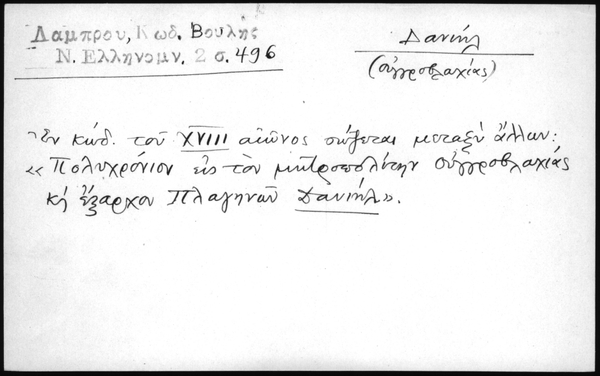 Λαμπρου, Κωδ. Βουλής
Ν. Ελληνομν. 2 σ. 496
Δανιήλ
(οὑγγροβλαχίας)
Ἐν κώδ. τοῦ XVIII αἰῶνος σῴζεται μεταξὺ ἄλλων:
« Πολυχρόνιον εἰς τὸν μητροπολίτην οὑγγροβλαχίας
κὴ ἔξαρχον Πλαγηνῶν Δανιήλ».